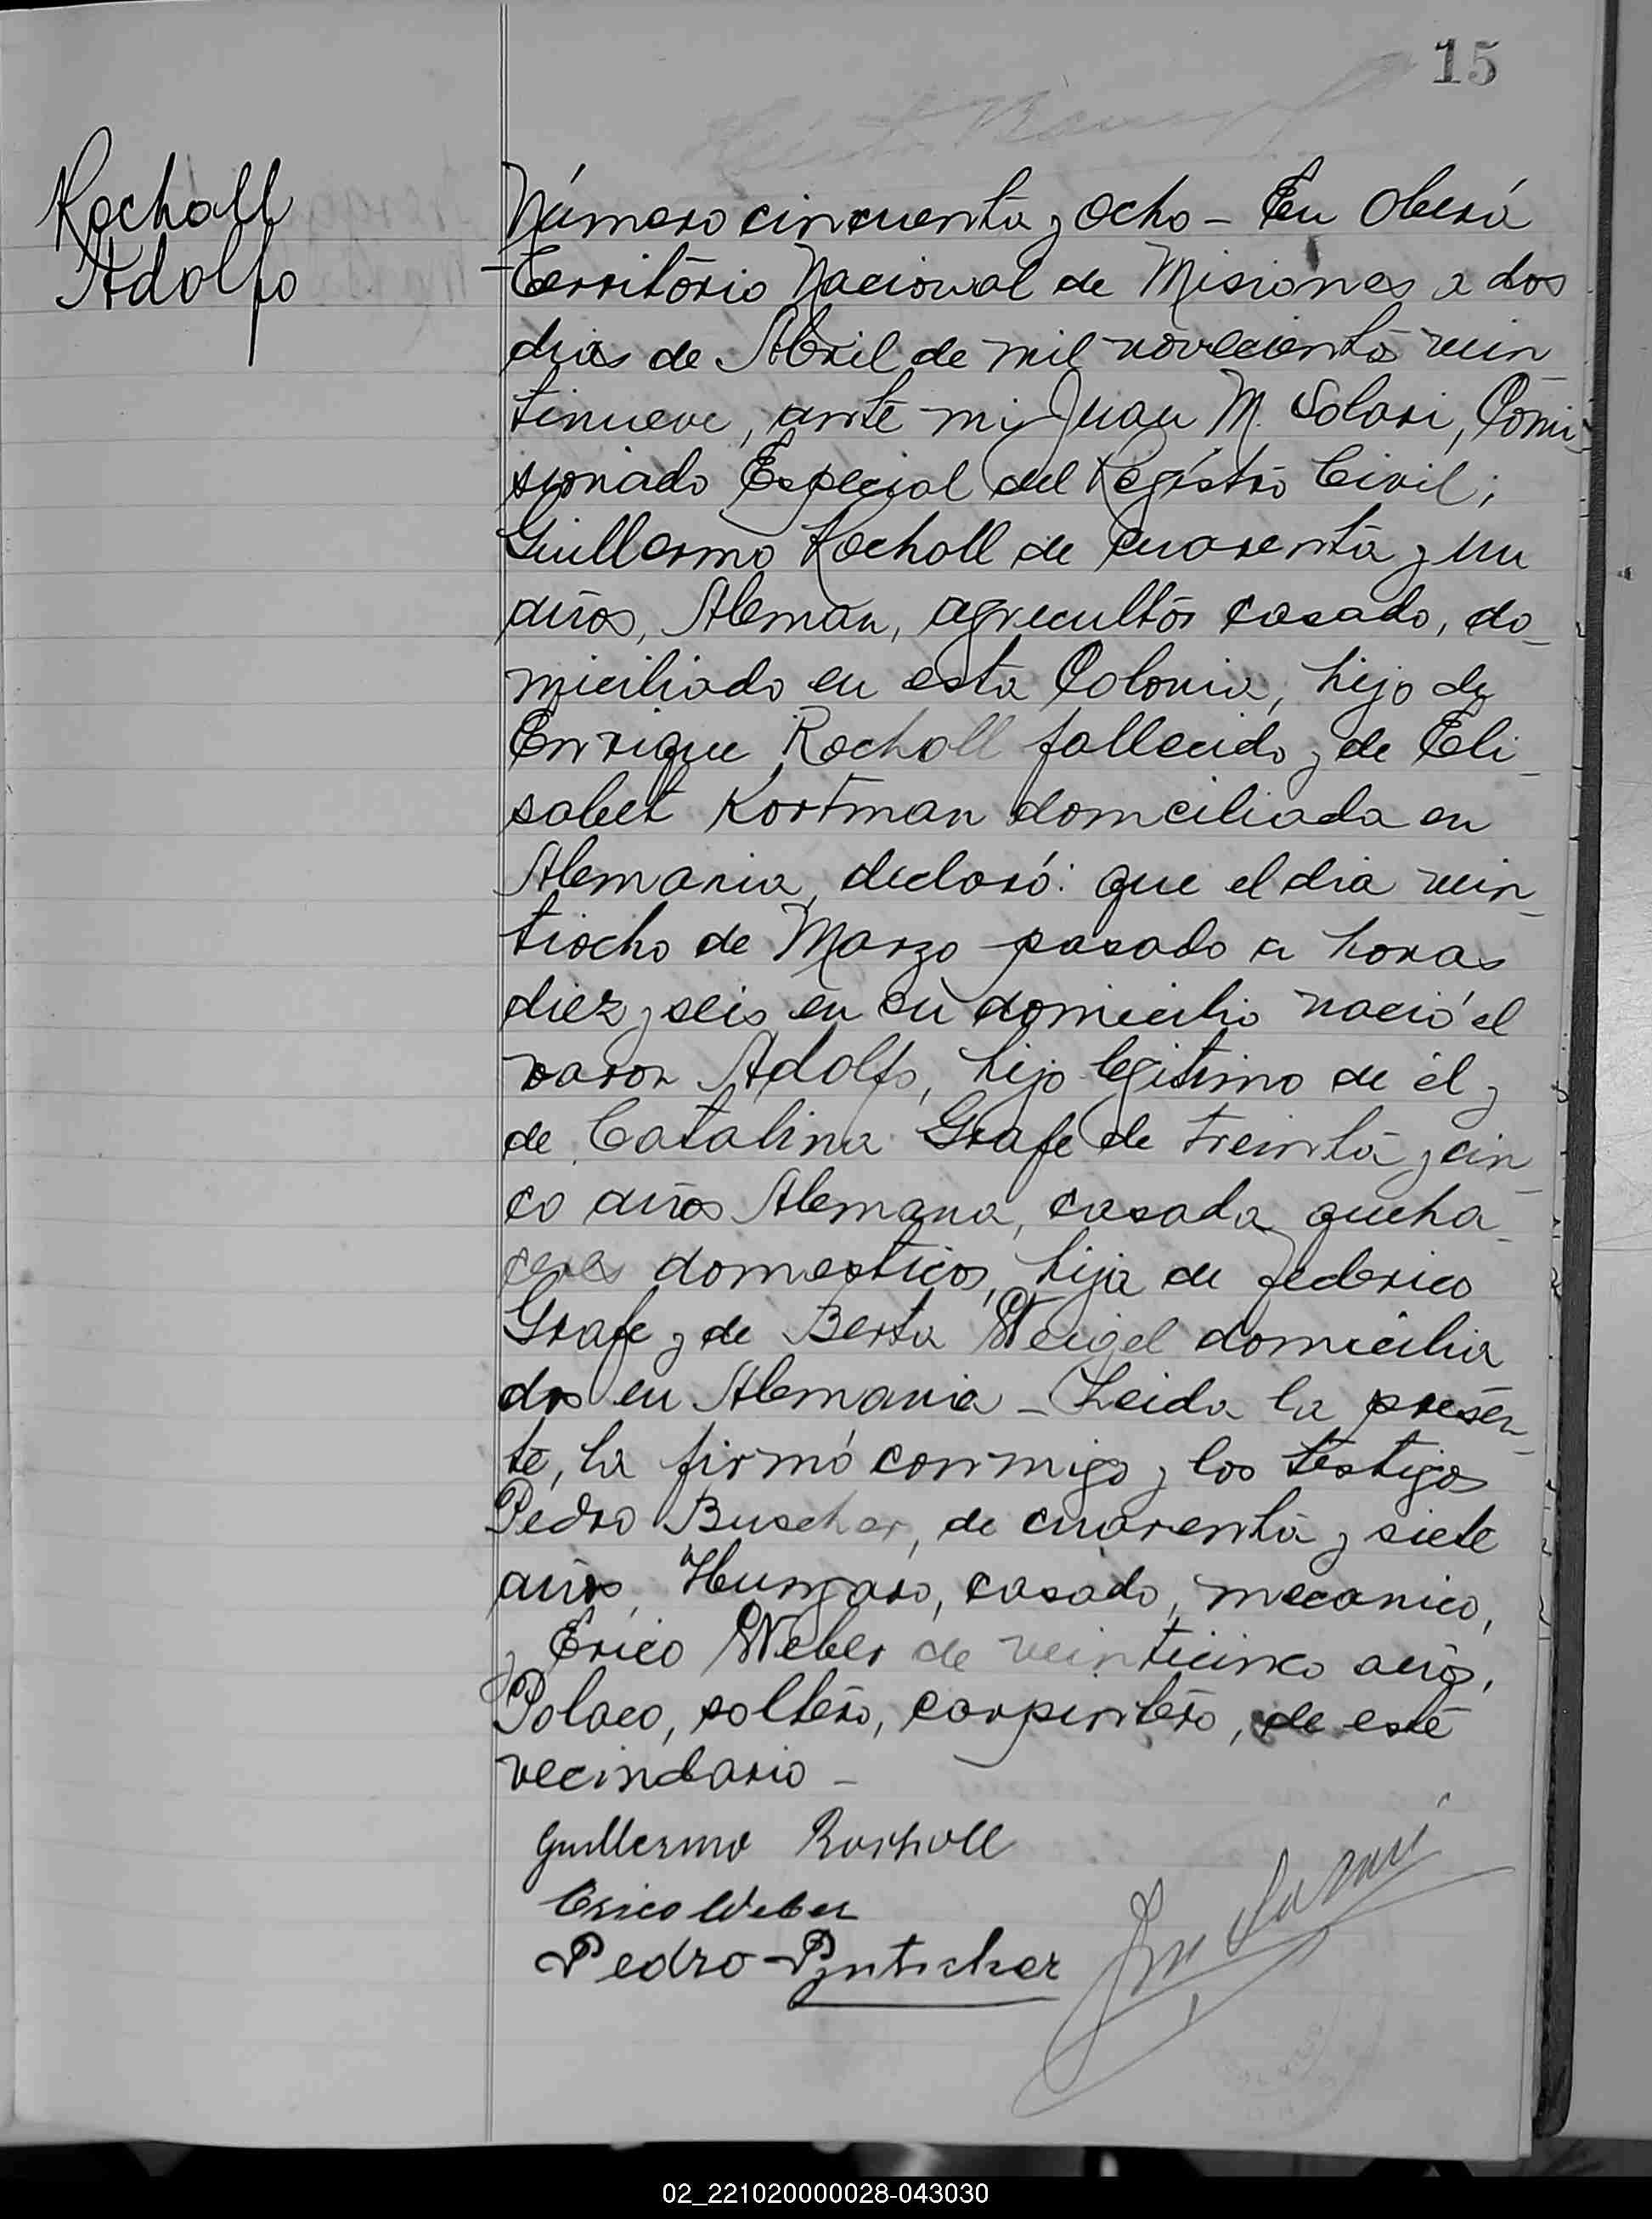 15
Rocholl
Adolfo
Número cincuenta y ocho – En Oberá
Territorio Nacional de Misiones a dos
dias de Abril de mil novecientos vein
tinueve, ante mi Juan M. Solari, Comi
sionado Especial del Registro Civil;
Guillermo Rocholl de cuarenta y un
años, Aleman, agricultor casado, do
miciliado en esta Colonia, hijo de
Enrique Rocholl fallecido y de Eli
sabet Kortman domciliada en
Alemania, declaró: que el dia vein
tiocho de Marzo pasado a horas
diez y seis en su domicilio nació el
varon Adolfo, hijo legitimo de él y
de Catalina Grafe de treinta y cin
co años Alemana, casada, queha
ceres domesticos, hija de Federico
Grafe y de Berta Weigel domicilia
dos en Alemania – Leida la presen
te, la firmó conmigo y los testigos
Pedro Buscher, de cuarenta y siete
años, Hungaro, casado, mecanico,
y Erico Weber de veinticinco años,
Polaco, soltero, carpintero, de este
vecindario –
Guillermo Rocholl
Erico Weber
Pedro
02_221020000028-043030